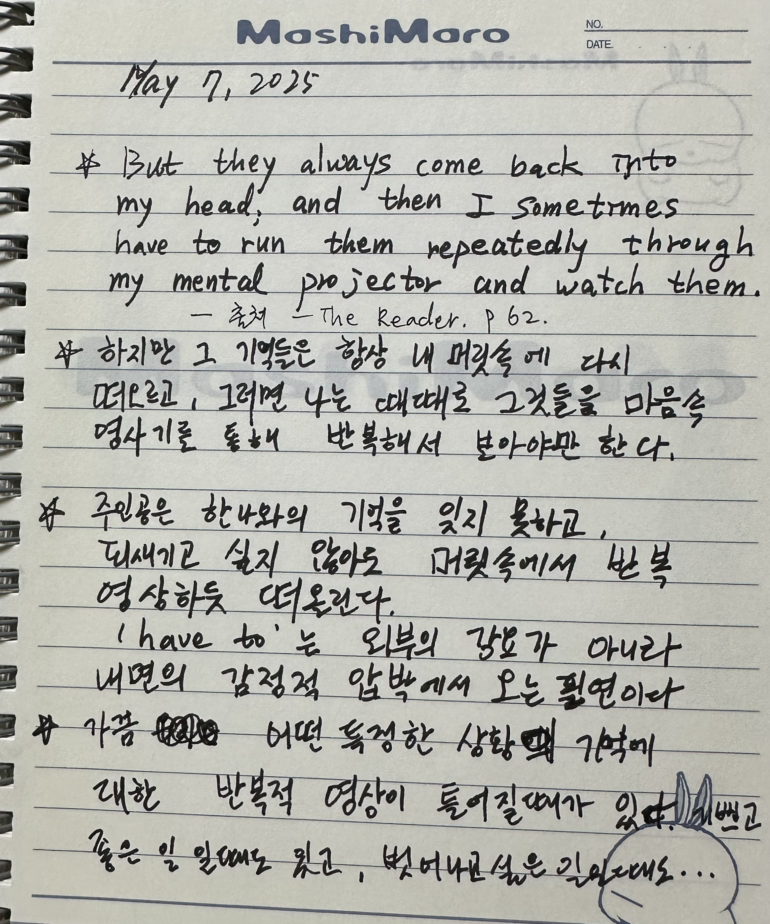 MashiMaro
NO.
DATE.
May 7, 2025
☆ But they always come back into
my head, and then I sometimes
have to run them repeatedly through
my mental projector and watch them.
— 출처 — The Reader. P 62.
☆ 하지만 그 기억들은 항상 내 머릿속에 다시
떠오르고, 그러면 나는 때때로 그것들을 마음속
영사기를 통해 반복해서 보아야만 한다.
☆ 주인공은 한나와의 기억을 잊지 못하고,
되새기고 싶지 않아도 머릿속에서 반복
영상하듯 떠올린다.
'have to'는 외부의 강요가 아니라
내면의 감정적 압박에서 오는 필연이다
☆ 가끔 어떤 특정한 상황 기억에
대한 반복적 영상이 틀어질때가 있다. 기쁘고
좋은 일 일때도 있고, 벗어나고 싶은